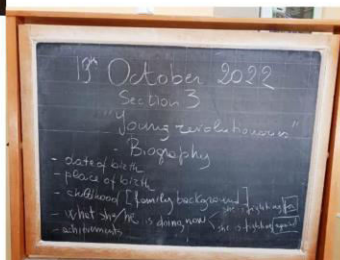 19th October 2022
Section 3
"Young revolutionaries"
- Biography
- date of birth
- place of birth
- childhood [family background]
- what she/he is doing now
she is fighting for
she is fighting against
- achievements